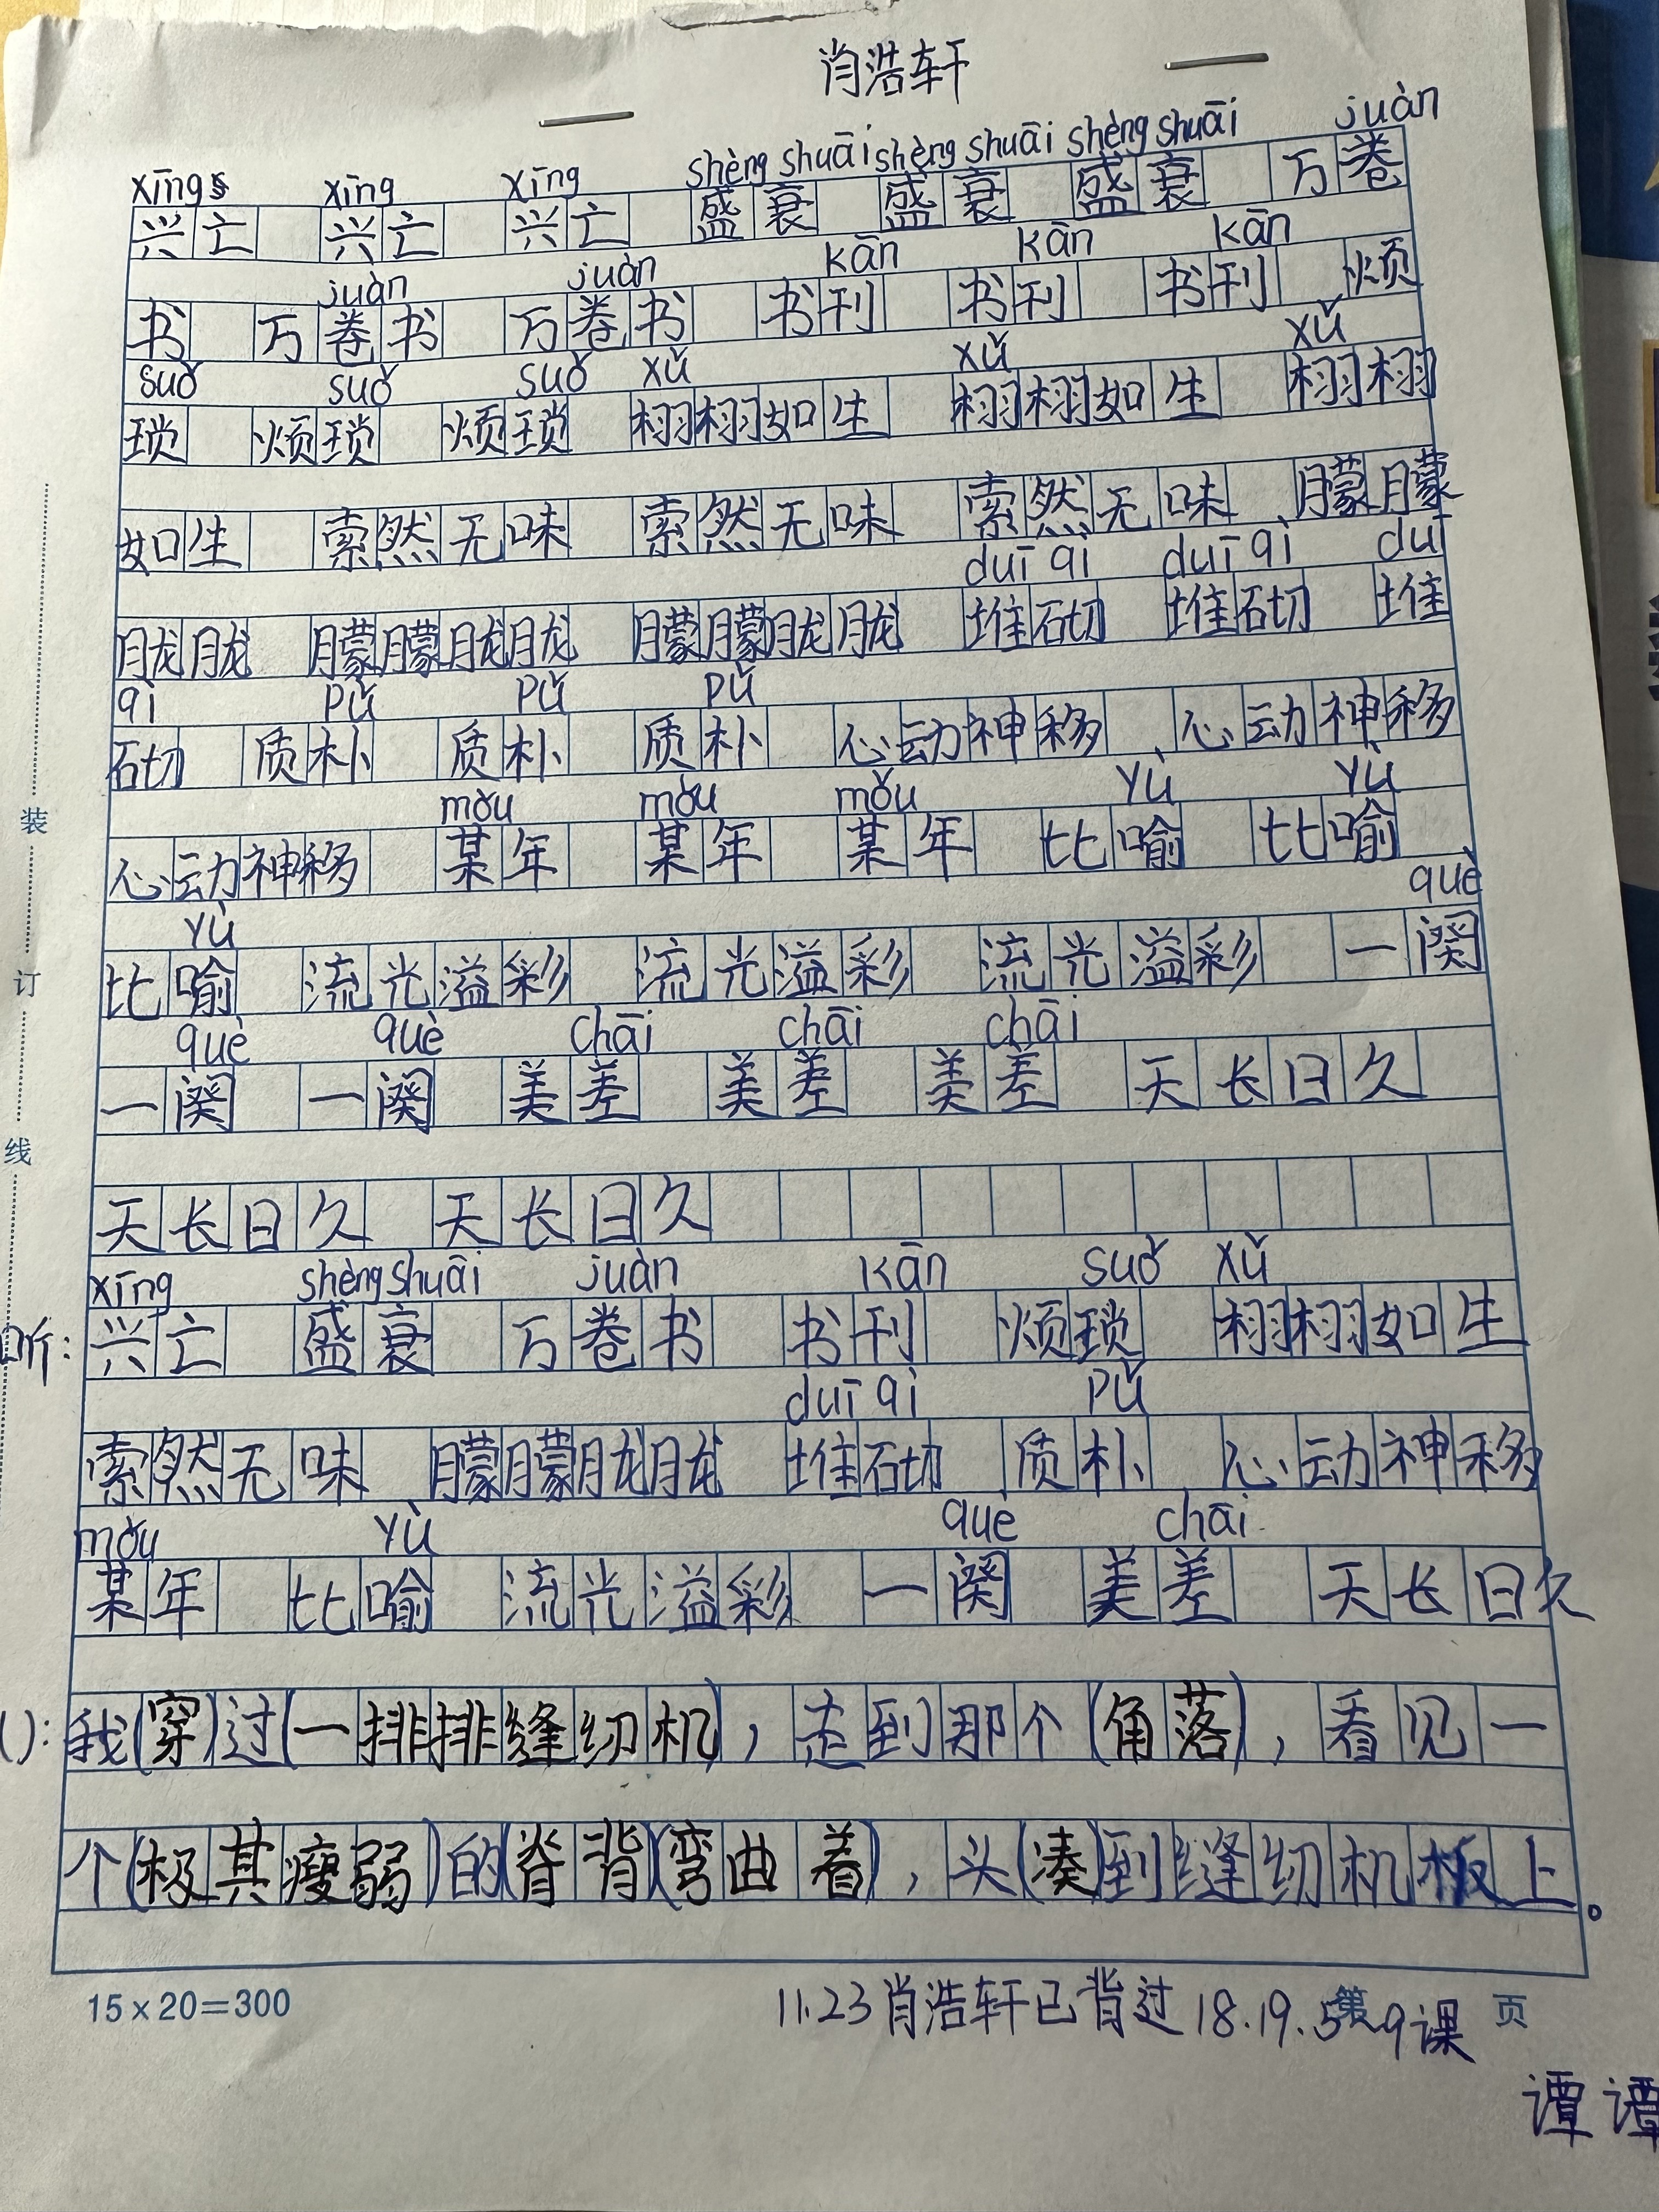 肖浩轩
xīng xīng xīng shèng shuāi shèng shuāi shèng shuāi juàn
兴亡 兴亡 兴亡 盛衰 盛衰 盛衰 万卷
juàn juàn kān kān kān
书 万卷书 万卷书 书刊 书刊 书刊 烦
suǒ suǒ suǒ xǔ xǔ xǔ
琐 烦琐 烦琐 栩栩如生 栩栩如生 栩栩
如生 索然无味 索然无味 索然无味 朦朦
duī qì duī qì duī
胧胧 朦朦胧胧 朦朦胧胧 堆砌 堆砌 堆
qì pǔ pǔ pǔ
砌 质朴 质朴 质朴 心动神移 心动神移
mǒu mǒu mǒu yù yù
心动神移 某年 某年 某年 比喻 比喻
yù què
比喻 流光溢彩 流光溢彩 流光溢彩 一阕
què què chāi chāi chāi
一阕 一阕 美差 美差 美差 天长日久
天长日久 天长日久
xīng shèng shuāi juàn kān suǒ xǔ
听: 兴亡 盛衰 万卷书 书刊 烦琐 栩栩如生
duī qì pǔ
索然无味 朦朦胧胧 堆砌 质朴 心动神移
mǒu yù què chāi
某年 比喻 流光溢彩 一阕 美差 天长日久
(): 我(穿)过(一排排缝纫机),走到那个(角落),看见一
个(极其瘦弱)的(脊背)(弯曲着),头(凑)到缝纫机板上。
装
订
线
15×20=300 第 页
11.23肖浩轩已背过18.19.5 9课
谭谭